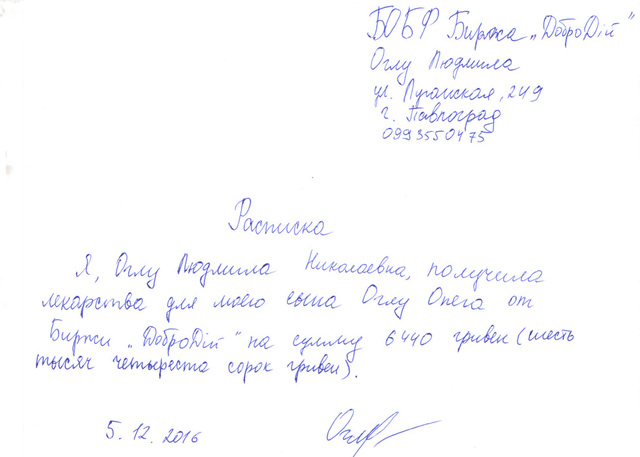 БОБФ Биржа „ДоброДій"
Оглу Людмила
ул. Луганская, 249
г. Павлоград
0993550475
Расписка
Я, Оглу Людмила Николаевна, получила
лекарства для моего сына Оглу Олега от
Биржи „ДоброДій" на сумму 6440 гривен (шесть
тысяч четыреста сорок гривен).
5.12.2016